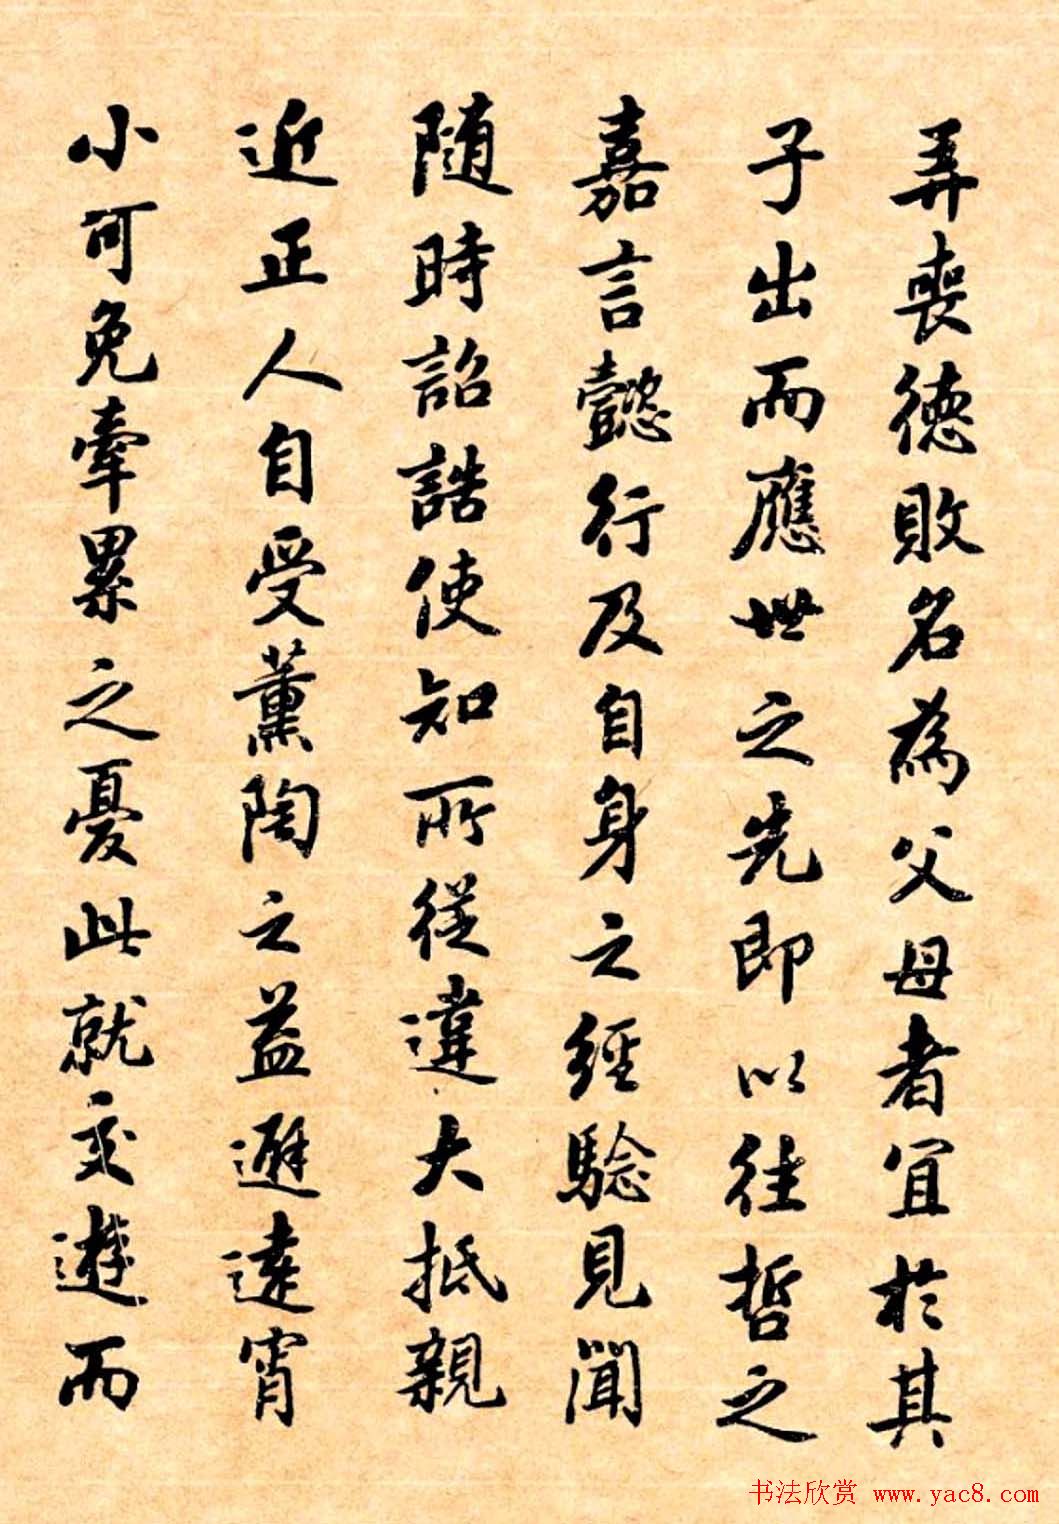 弄喪德敗名為父母者宜於其
子出而應世之先即以往哲之
嘉言懿行及自身之經驗見聞
随時詔誥使知所從違大抵親
近正人自受薰陶之益避遠宵
小可免牽累之憂此就交遊而
书法欣赏 www.yac8.com